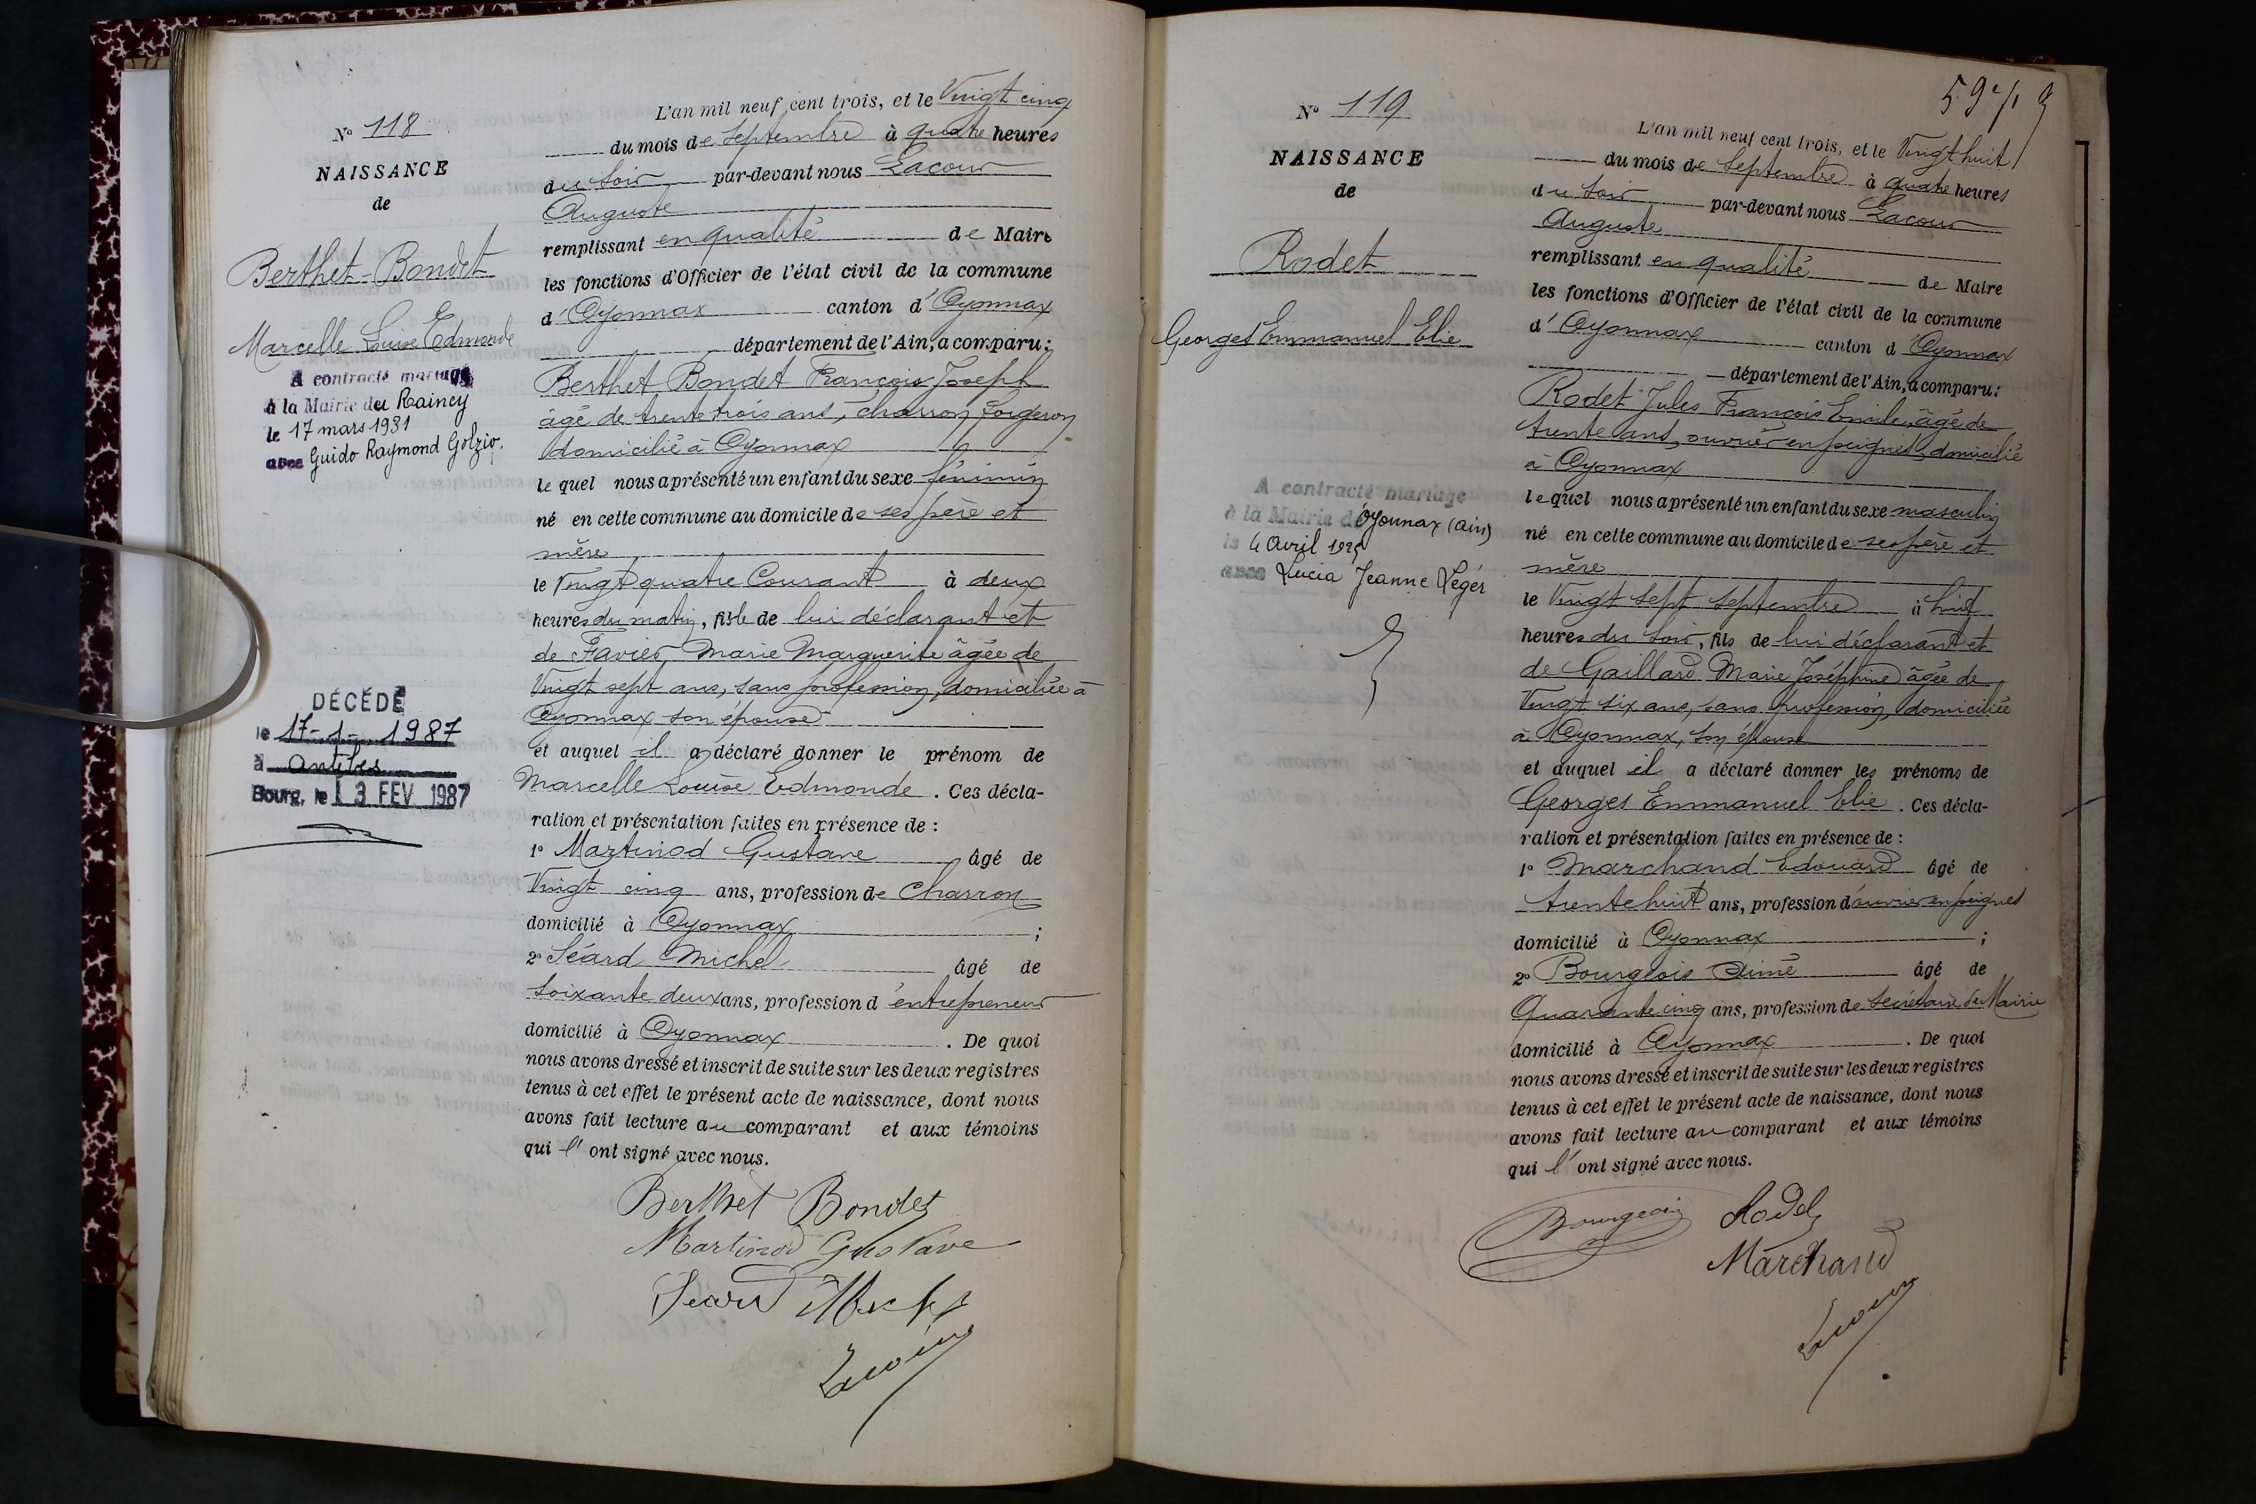 N° 118
NAISSANCE
de
Berthet-Bondet
Marcelle Louise Edmonde
A contracté mariage
à la Mairie du Raincy
le 17 mars 1931
avec Guido Raymond Golzio.
DÉCÉDÉ
le 17-1- 1987
à antibes
Bourg, le 13 FEV 1987
L'an mil neuf cent trois, et le Vingt cinq
du mois de Septembre à quatre heures
du soir par-devant nous Lacour
Auguste
remplissant en qualité de Maire
les fonctions d'Officier de l'état civil de la commune
d'Oyonnax canton d'Oyonnax
département de l'Ain, a comparu:
Berthet Bondet François Joseph
âgé de trente trois ans, charron forgeron
domicilié à Oyonnax
lequel nous a présenté un enfant du sexe féminin
né en cette commune au domicile de ses père et
mère
le Vingt quatre Courant à deux
heures du matin, fille de lui déclarant et
de Favier Marie Marguerite âgée de
Vingt sept ans, sans profession, domiciliée à
Oyonnax son épouse
et auquel il a déclaré donner le prénom de
Marcelle Louise Edmonde. Ces décla-
ration et présentation faites en présence de :
1° Martinod Gustave âgé de
Vingt cinq ans, profession de Charron
domicilié à Oyonnax ;
2° Séard Michel âgé de
soixante deux ans, profession d'entrepreneur
domicilié à Oyonnax. De quoi
nous avons dressé et inscrit de suite sur les deux registres
tenus à cet effet le présent acte de naissance, dont nous
avons fait lecture au comparant et aux témoins
qui l'ont signé avec nous.
Berthet Bondet
Martinod Gustave
Séard Michel
Lacour
59
N° 119
NAISSANCE
de
Rodet
Georges Emmanuel Elie
A contracté mariage
à la Mairie de Oyonnax (Ain)
le 4 Avril 1925
avec Lucia Jeanne Légér
L'an mil neuf cent trois, et le Vingt huit
du mois de Septembre à quatre heures
du soir par-devant nous Lacour
Auguste
remplissant en qualité de Maire
les fonctions d'Officier de l'état civil de la commune
d'Oyonnax canton d'Oyonnax
département de l'Ain, a comparu:
Rodet Jules François Emile, âgé de
trente ans, ouvrier en peignes, domicilié
à Oyonnax
lequel nous a présenté un enfant du sexe masculin
né en cette commune au domicile de ses père et
mère
le Vingt sept Septembre à huit
heures du soir, fils de lui déclarant et
de Gaillard Marie Joséphine âgée de
Vingt six ans, sans profession, domiciliée
à Oyonnax, son épouse
et auquel il a déclaré donner les prénoms de
Georges Emmanuel Elie. Ces décla-
ration et présentation faites en présence de :
1° Marchand Edouard âgé de
trente huit ans, profession d'ouvrier en peignes
domicilié à Oyonnax ;
2° Bourgeois Aimé âgé de
Quarante cinq ans, profession de Secrétaire de Mairie
domicilié à Oyonnax. De quoi
nous avons dressé et inscrit de suite sur les deux registres
tenus à cet effet le présent acte de naissance, dont nous
avons fait lecture au comparant et aux témoins
qui l'ont signé avec nous.
Bourgeois Rodet
Marchand
Lacour